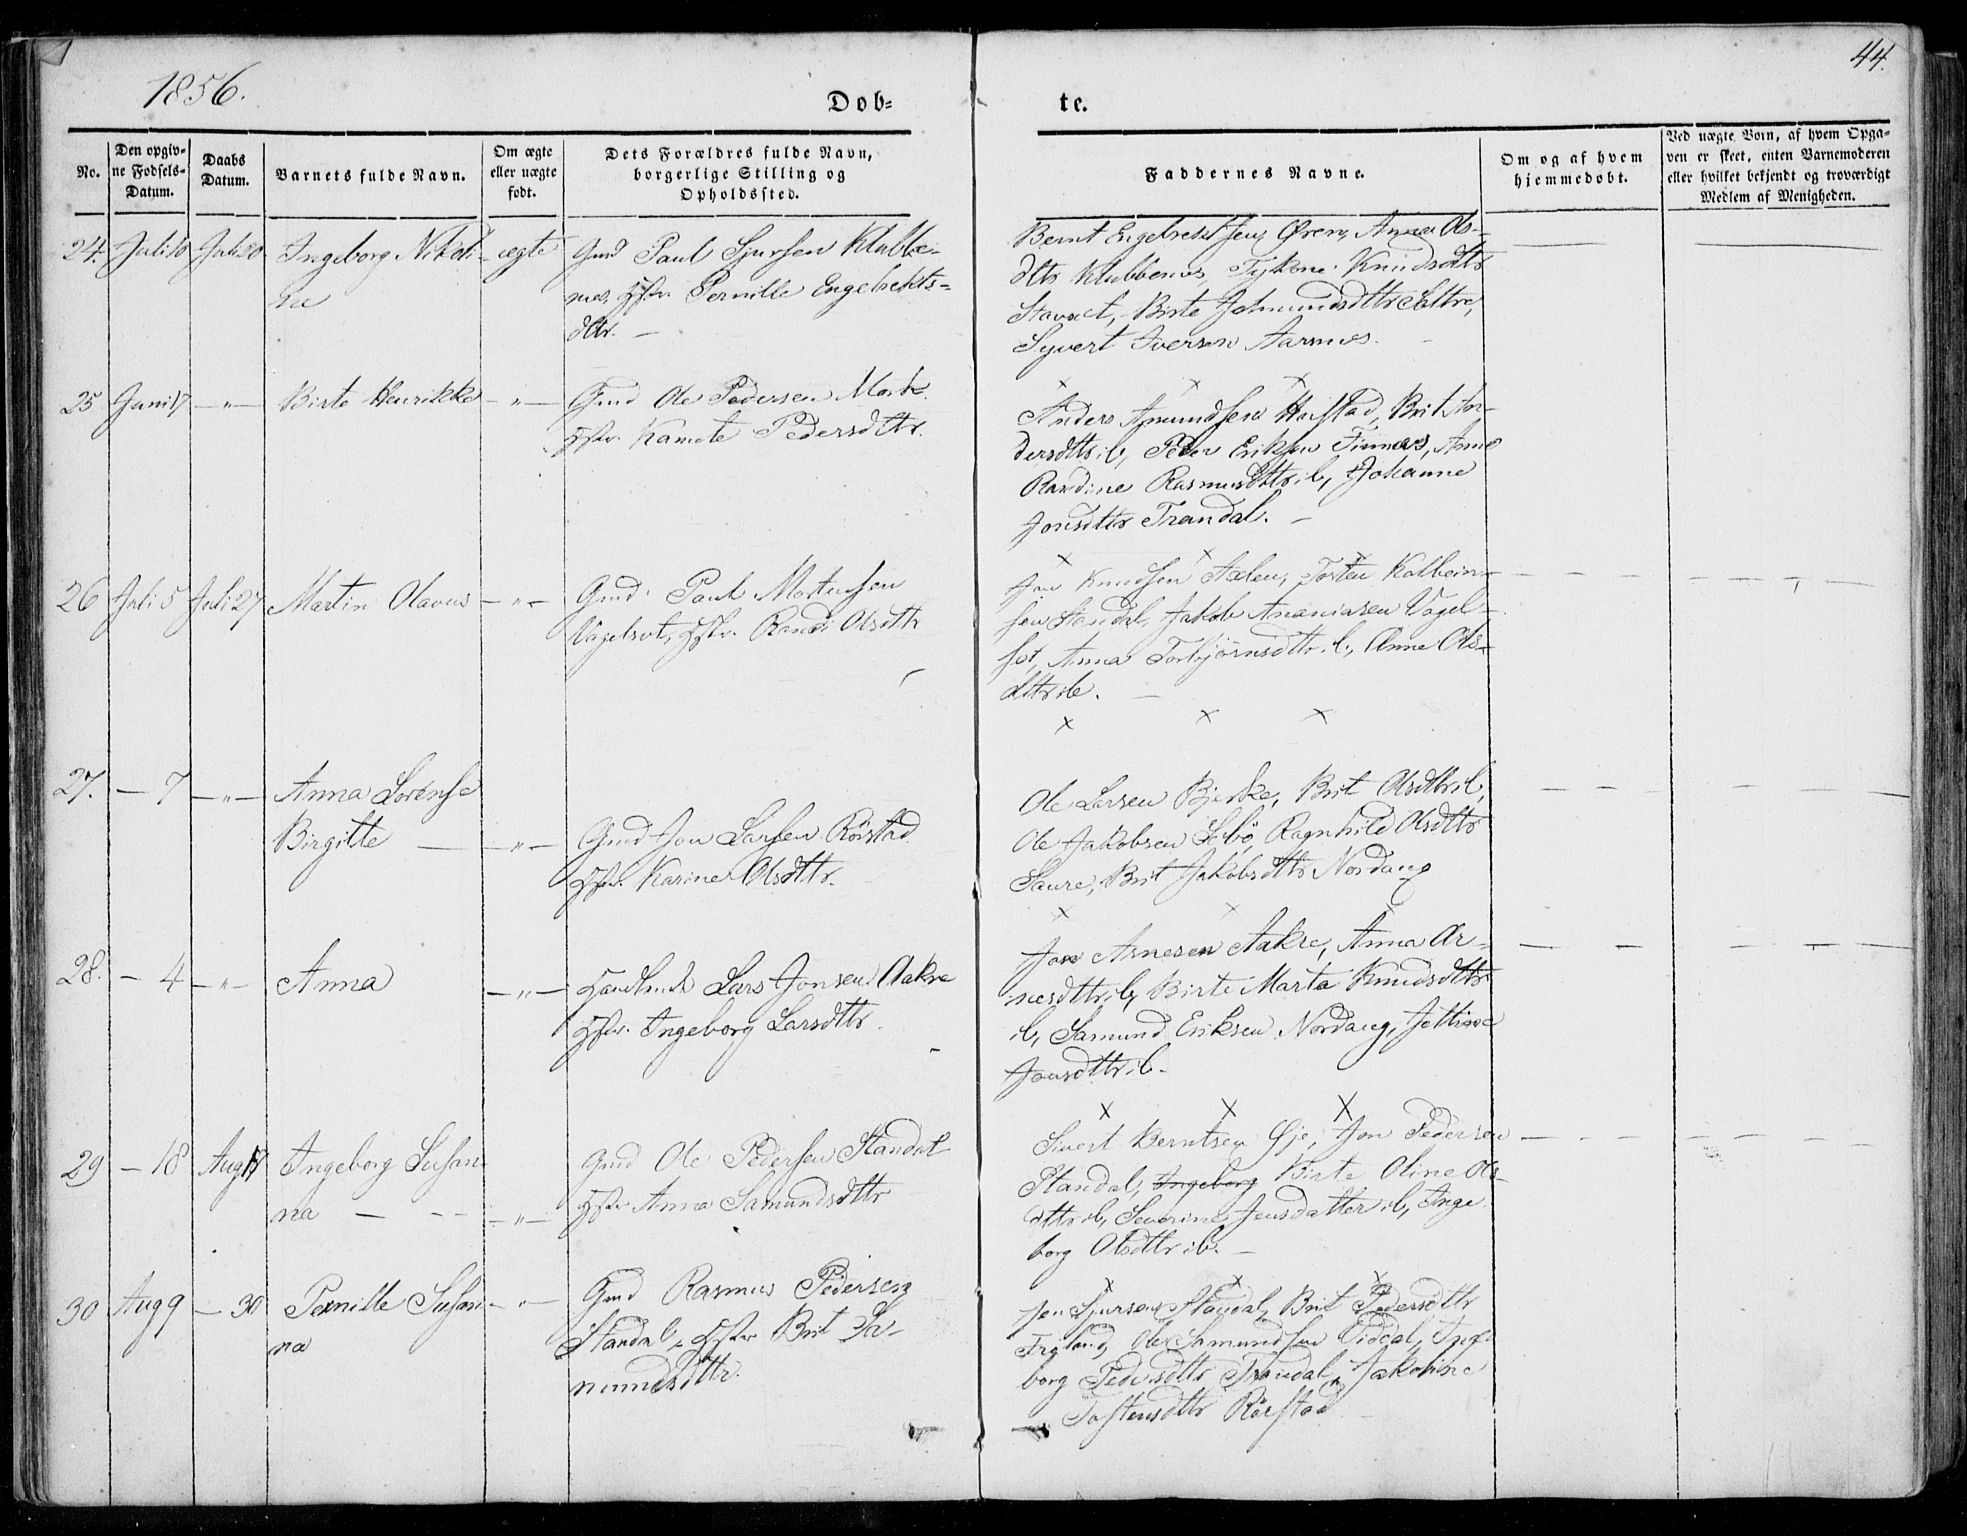 1856.
44.
Døb=
te.
No.
Den opgiv=
ne Fødsels=
Datum.
Daabs
Datum.
Barnets fulde Navn.
Om ægte
eller uægte
født.
Dets Forældres fulde Navn,
borgerlige Stilling og
Opholdssted.
Faddernes Navne.
Om og af hvem
hjemmedøbt.
Ved uægte Børn, af hvem Opga=
ven er skeet, enten Barnemoderen
eller hvilket bekjendt og troværdigt
Medlem af Menigheden.
24. Juli 10 Juli 20 Ingeborg Nikoli-
ne
ægte
Gmd Paul Sjursen Klubbe-
nes, Hstr. Pernille Engebrekts=
dtr. —
Bernt Engebrektsen Øren, Anna Ols-
dtr Klubbenes, Knudsdtr
Birte Sætre,
Syvert Iversen Aarsnes.
x x x
25 Juni 17 — " — Birte Henrikke — " —
Gmd Ole Pedersen Mork.
Hstr. Pedersdtr.
Anders Amundsen Hustad, Brit An-
dersdtr ib, Peder Eriksen Finnes, Anne
Randine Rasmusdtr ib, Johanne
Jonsdtr Trandal. —
x x x
26 Juli 5 Juli 27 Martin Olavus — " —
Gmd. Paul Mortensen
Vagelsvt, Hstr. Randi Olsdtr
Jon Knudsen Aalen, Torsten Kolbein-
sen Standal, Jakob Ananiasen Vagel-
sot, Anna Torbjörnsdttr. ib, Anne Ols-
dttr ib. —
x x x
27. — 7 — " — Anna Lorense
Birgitte — — " —
Gmd Jon Larsen Rörstad
Hstr. Karine Olsdttr.
Ole Larsen Bjerke, Brit Olsdttr ib,
Ole Jakobsen Sæbö, Ragnhild Olsdttr
Saure, Brit Jakobsdttr Nordang
x x x
28. — 4 — " — Anna — " —
Lars Jonsen Aakre
Hstr. Ingeborg Larsdttr.
Jon Arnesen Aakre, Anna Ar-
nesdttr ib, Birte Marta Knudsdttr
ib, Samund Eriksen Nordang,
Jonsdttr ib.
x x x
29 — 18 Aug 17 Ingeborg Susan-
na — — " —
Gmd Ole Pedersen Standal
Hstr Anna Samundsdttr
Sivert Berntsen Øje, Jon Pedersen
Standal, Ingeborg Birte Oline Ols-
dttr ib, Severine Jensdatter ib, Inge
borg Olsdttr ib. —
30 Aug 9 — 30 Pernille Susan-
na — " —
Gmd Rasmus Pedersen
Standal, Hstr Brit Sa-
mundsdttr.
x x x
Jon Sjursen Standal, Brit Pedersdttr
Ole Samundsen Inge
borg Pedersdttr Trandal, Jakobine
Tostensdttr Rörstad